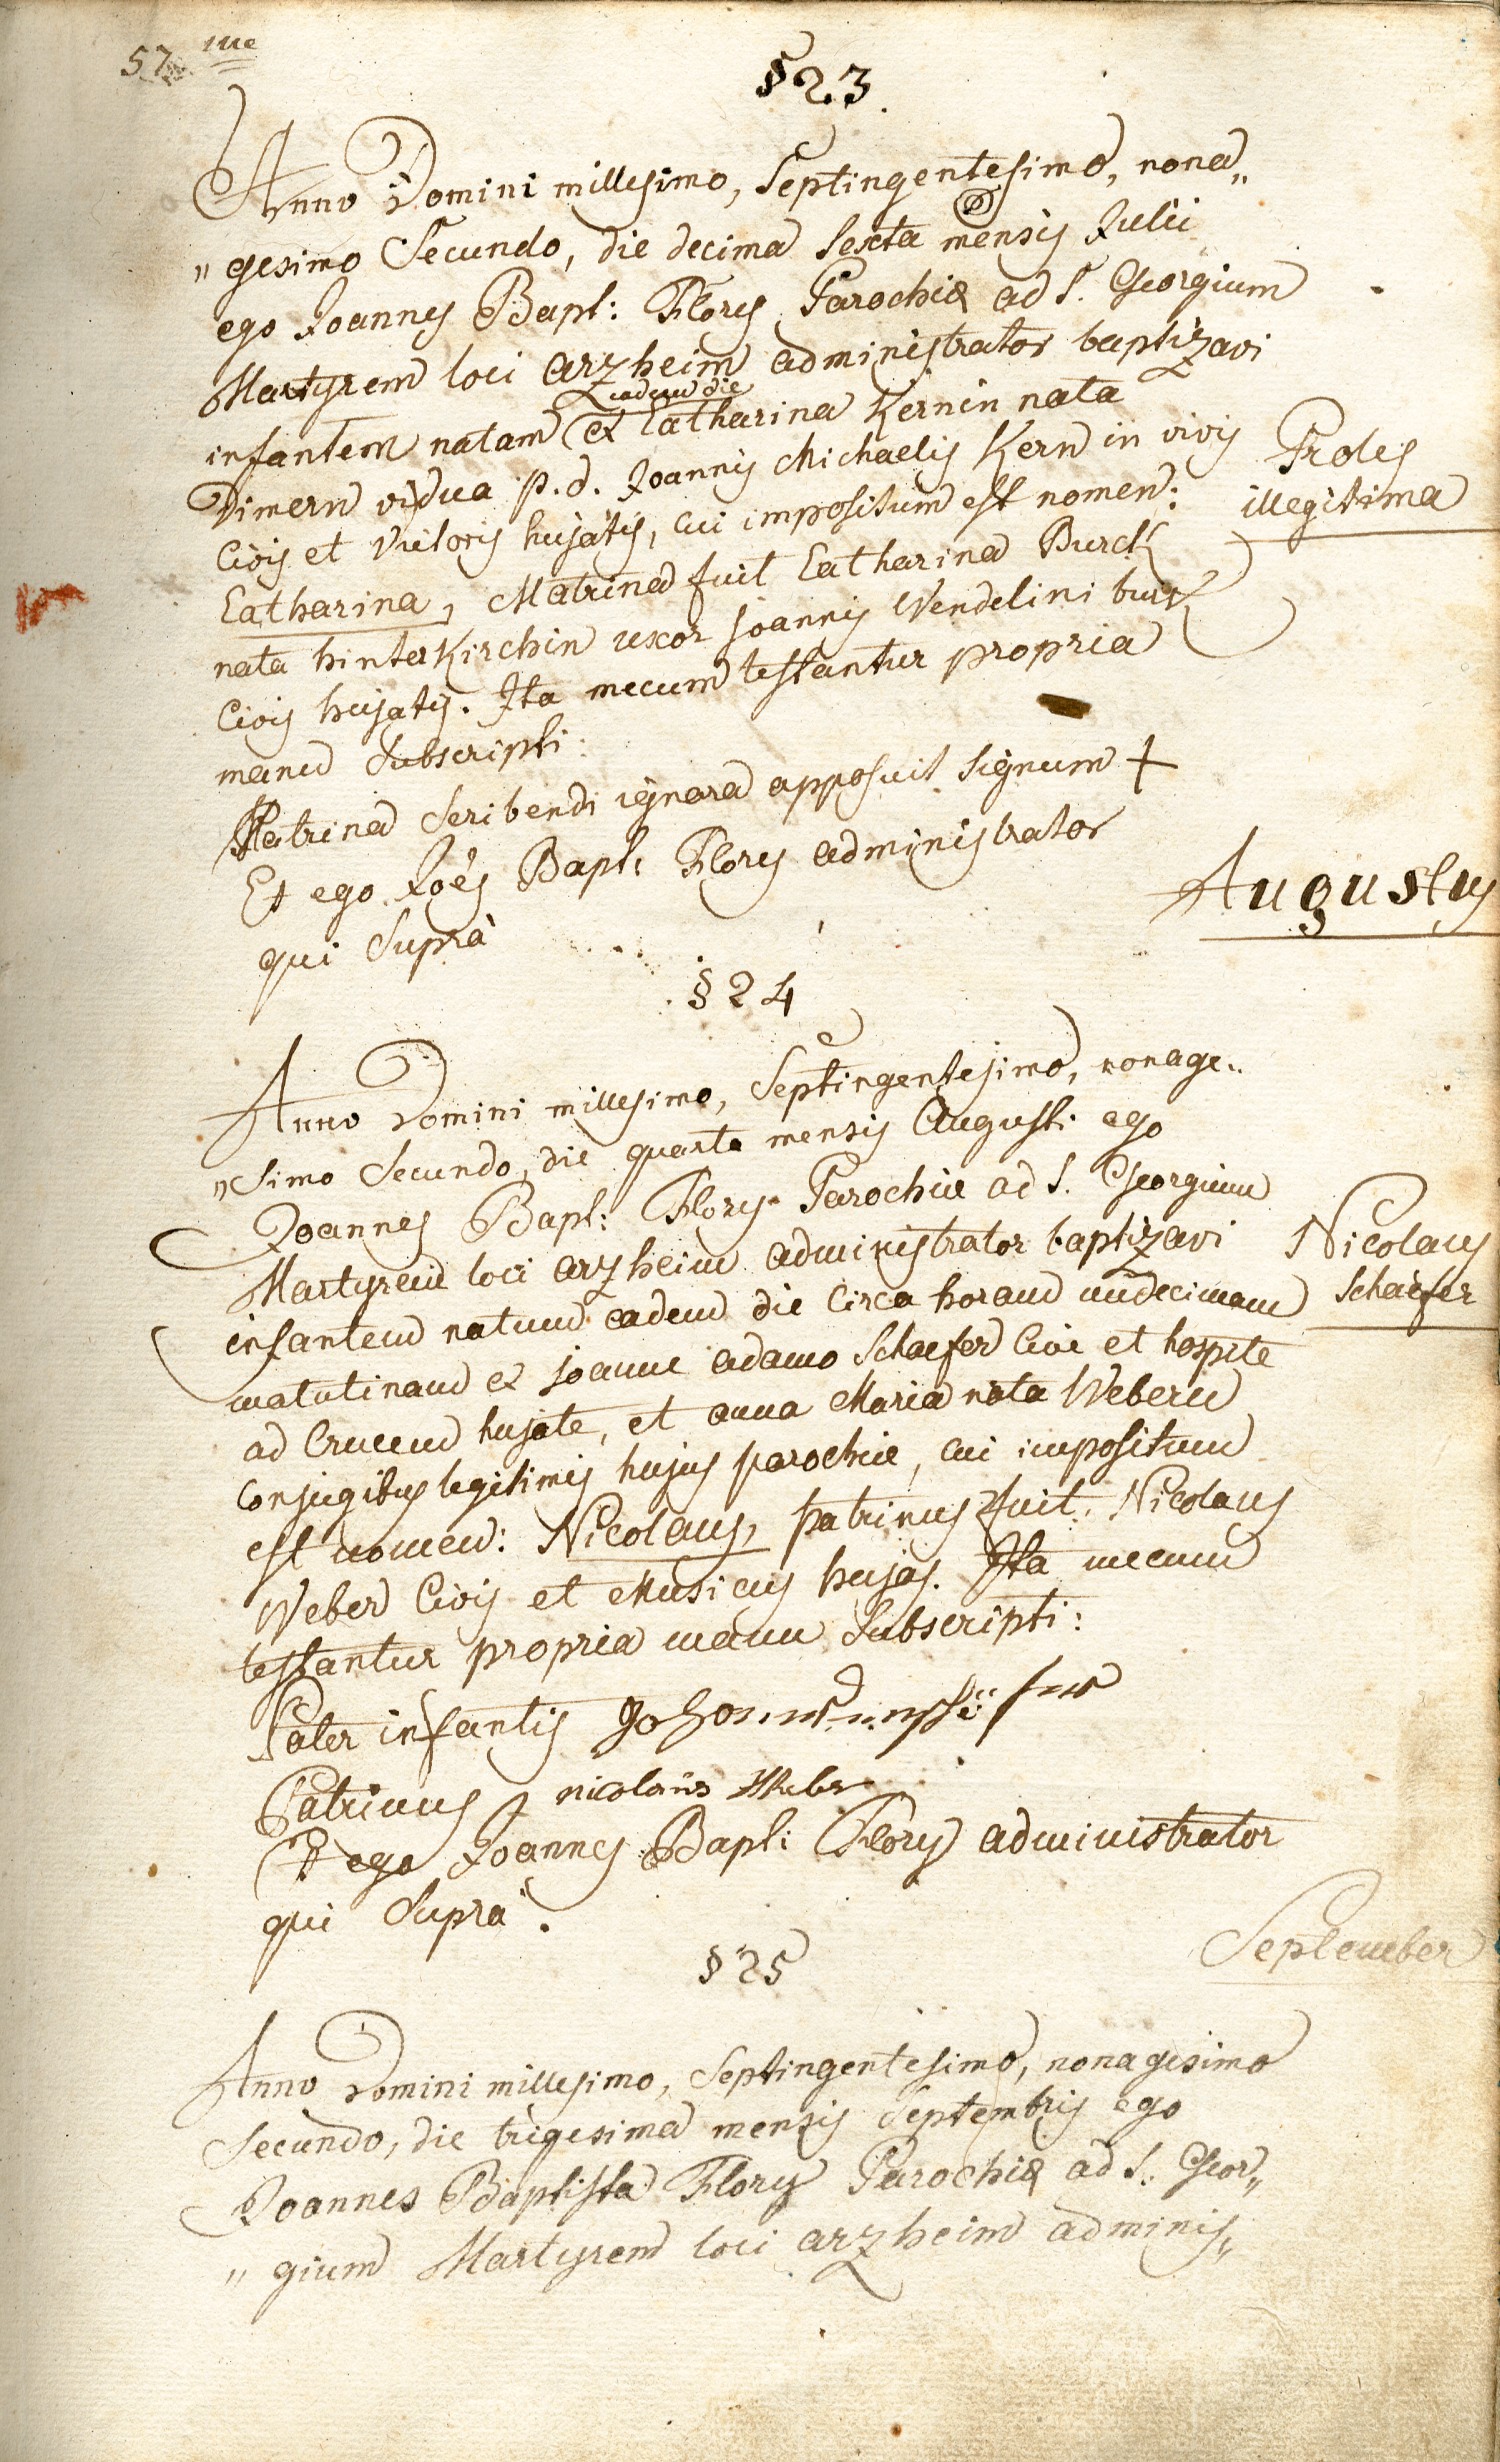 57. me
§ 23.
Anno Domini millesimo, Septingentesimo, nona„
„gesimo Secundo, die decima Sexta mensis Julii
ego Joannes Bapt: Flory Parochiæ ad S. Georgium
Martyrem loci arzheim administrator baptizavi
eadem die
infantem natam ex Catharina Kernin nata
Dimern vidua p. d. Joannis Michaelis Kern in vivis
Proles
Civis et Vietoris hujatis, cui impositum est nomen:
illegitima
Catharina, Matrina fuit Catharina Burck
nata hinterkirchin uxor joannis Wendelini burck
Civis hujatis. Ita mecum testantur propria
manu Subscripti:
Matrina Scribendi ignara apposuit Signum +
Et ego Joes Bapt: Flory administrator
Augustus
qui Suprà
§ 24
Anno Domini millesimo, Septingentesimo, nonage„
„simo Secundo, die quarta mensis Augusti ego
Joannes Bapt: Flory Parochiæ ad S. Georgium
Martyrem loci arzheim administrator baptizavi
Nicolaus
infantem natum eadem die Circa horam undecimam
Schaefer
matutinam ex joanne adamo Schaefer Cive et hospite
ad Crucem hujate, et anna Maria nata Weberin
Conjugibus legitimis hujus parochiæ, cui impositum
est nomen: Nicolaus, patrinus fuit Nicolaus
Weber Civis et Musicus hujas. Ita mecum
testantur propria manu Subscripti:
Pater infantis
Patrinus nicolaus Weber
Et ego Joannes Bapt: Flory administrator
qui Suprà.
September
§ 25
Anno Domini millesimo, Septingentesimo, nonagesimo
Secundo, die trigesima mensis Septembris ego
Joannes Baptista Flory Parochiæ ad S. Geor„
„gium Martyrem loci arzheim adminis„